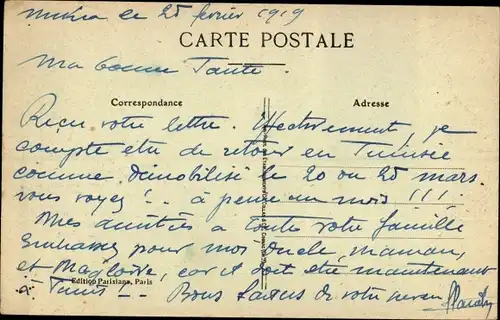 le 25 février 1919
CARTE POSTALE
Ma bonne Tante.
Correspondance
Adresse
Reçu votre lettre. Effectivement, je
compte etre de retour en Tunisie
comme démobilisé le 20 ou 25 mars.
vous voyez !.. à peine un mois !!!
Mes amitiés à toute votre famille
Embrassez pour moi Oncle, Maman,
et Magloire, car il doit être maintenant
Editico Parisiana, Paris
à Tunis -- Bons baisers de votre neveu